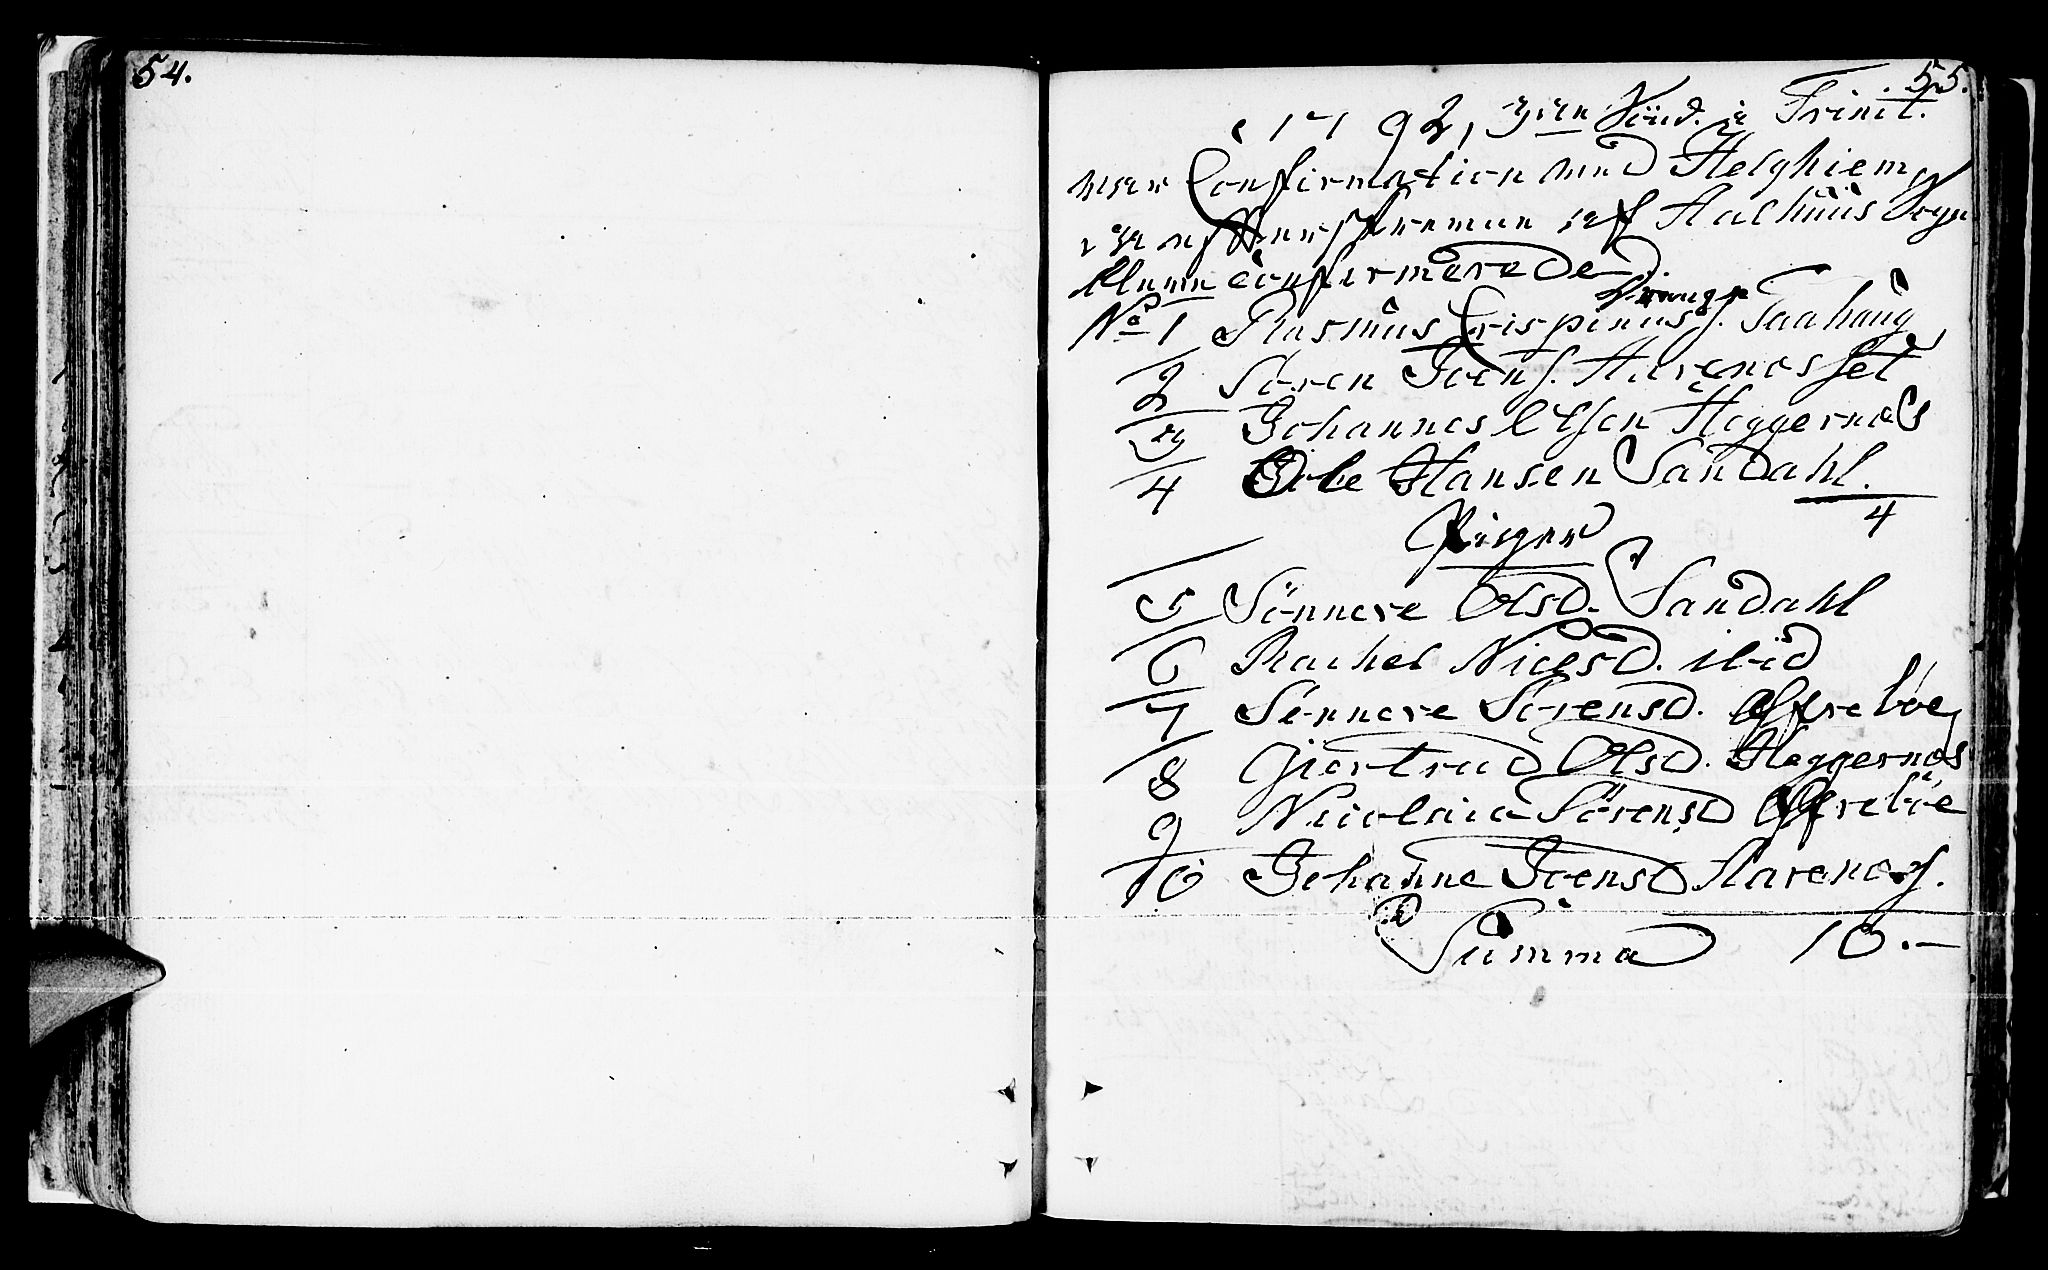 54.
55.
1792, 3die Sönd. a Trinit.
war Confirmation ved Helghiem,
og efterskrevne af Aalhuus Sogn
bleve confirmerede.
Drenge
No 1 Rasmus Crispinus s. Taahaug
2 Sören Joens. Aarenesset
3 Johannes Olsen Heggernæs
4 Ole Hansen Sandahl.
4
Piger
5 Sönneve Olsd. Sandahl
6 Rachel Nielsd. ibid
7 Sönneve Sörensd. Ofreböe
8 Giertrud Olsd. Heggernæs
9 Nicolaia Sörensd Ofreböe
10 Johanne Joensd Aarenes.
Summa 10.-